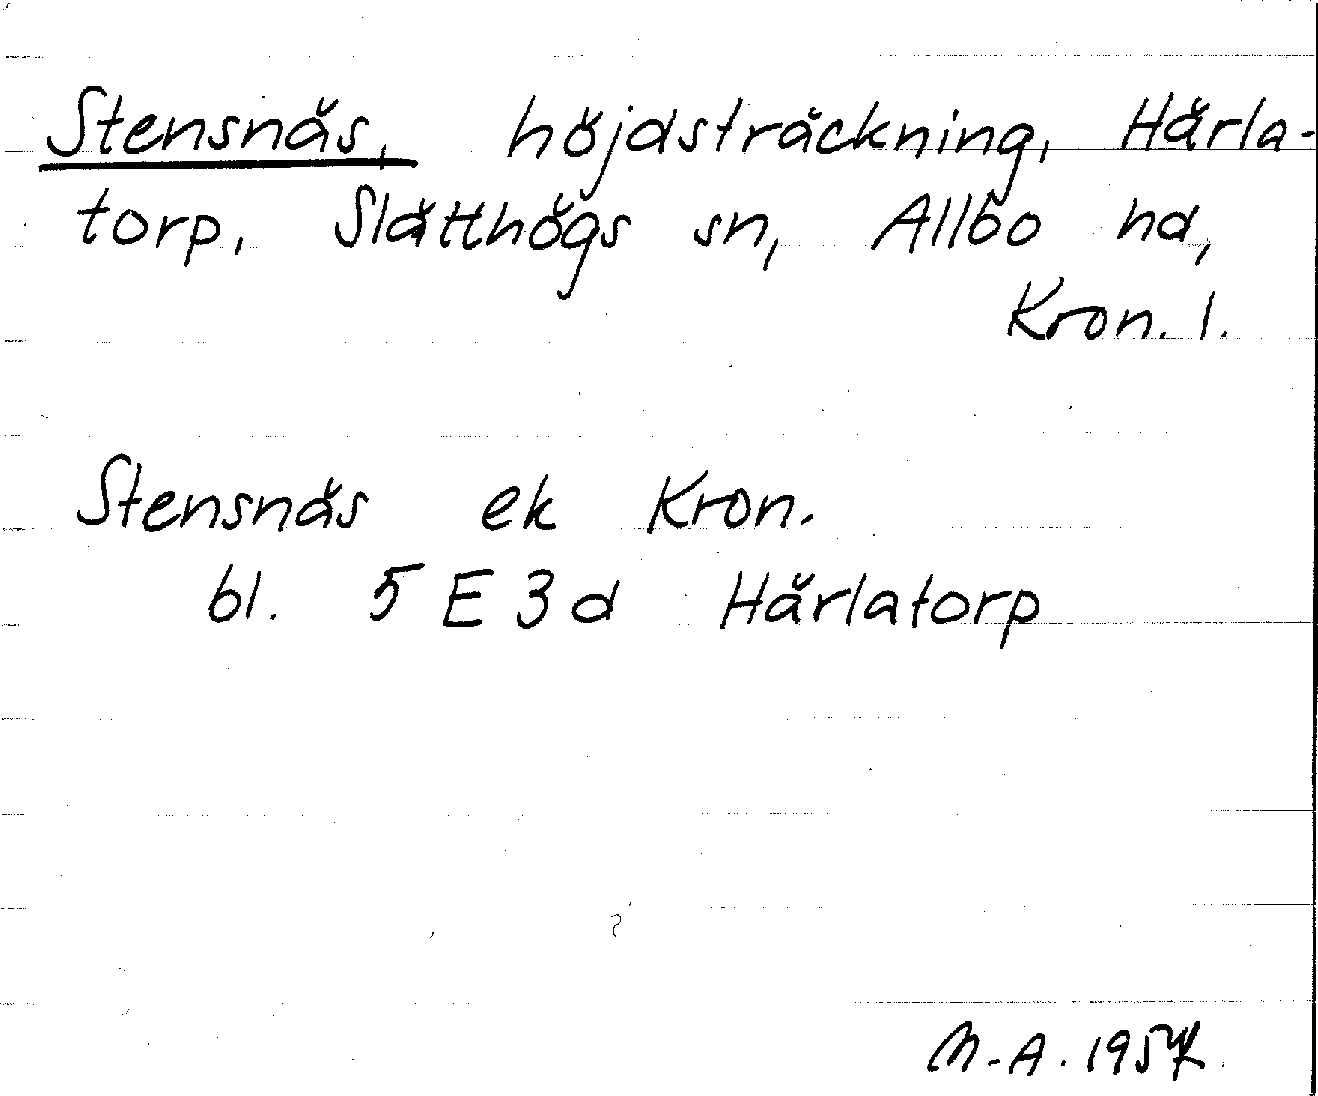 Stensnäs, höjdsträckning, Härla-
torp, Slätthögs sn, Allbo hd,
Kron. l.
Stensnäs ek Kron.
bl. 5 E 3 d Härlatorp